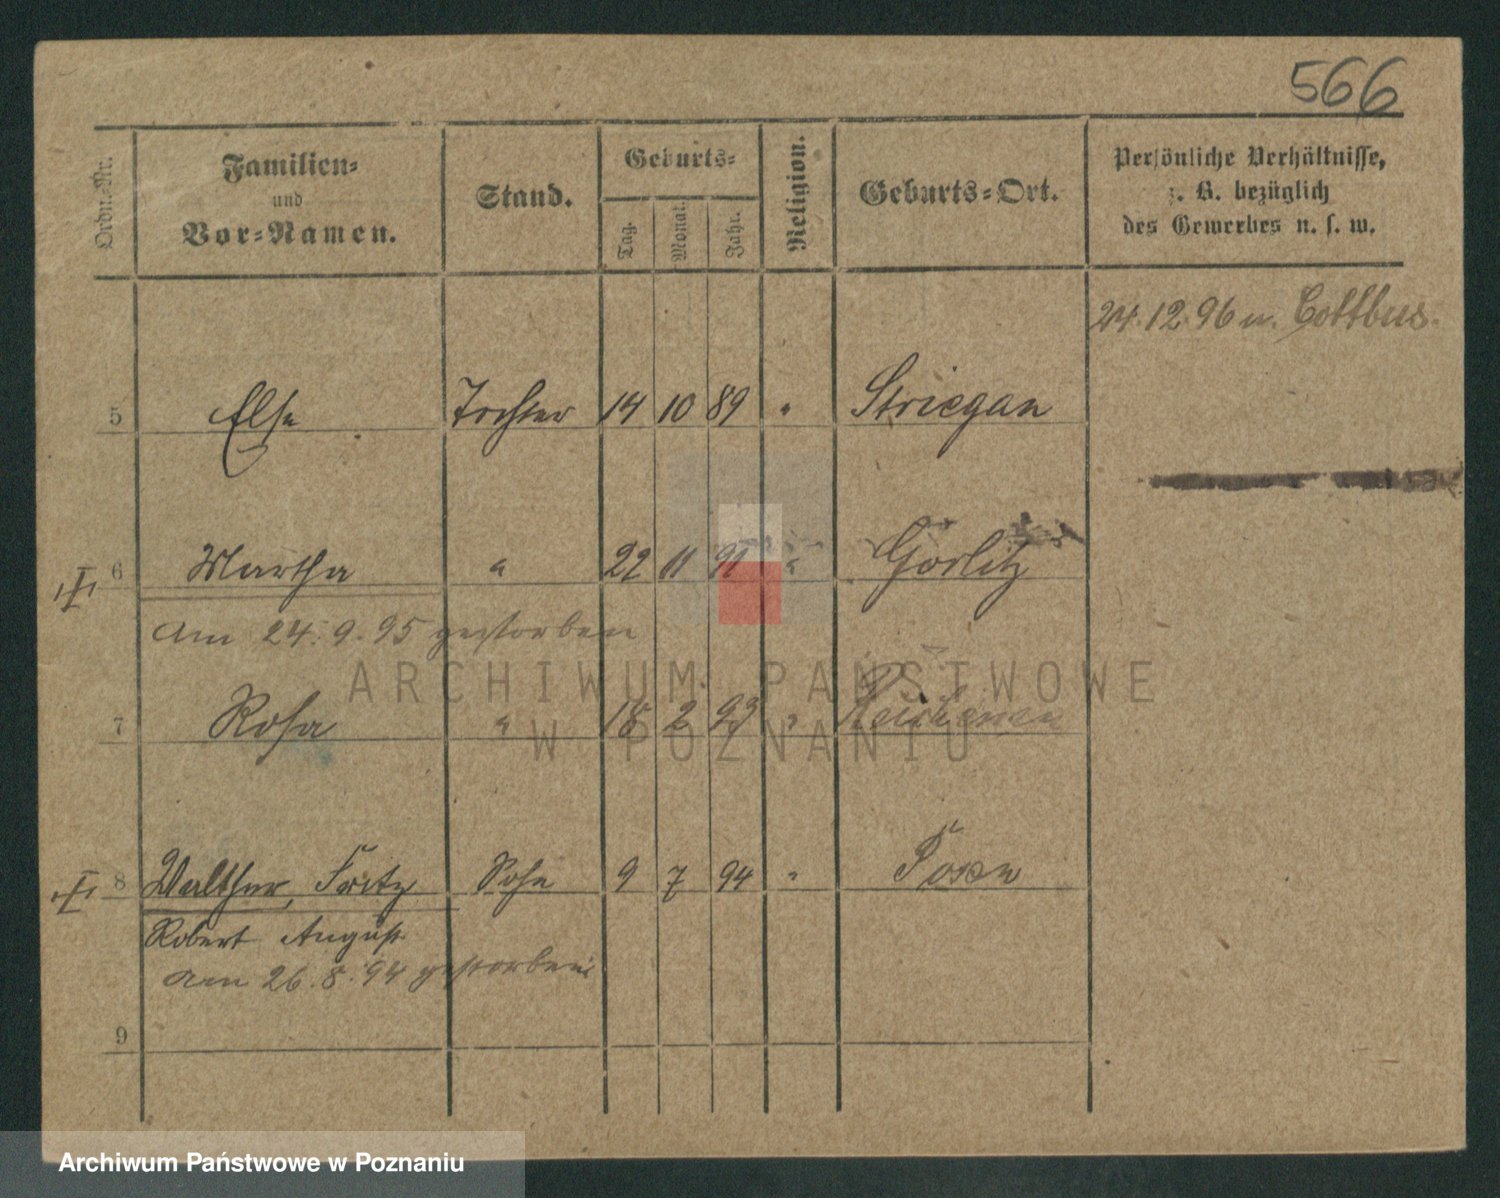 566
Ordn.-Nr.
Familien-
und
Vor-Namen.
Stand.
Geburts-
Tag.
Monat.
Jahr.
Religion.
Geburts-Ort.
Persönliche Verhältnisse,
z. B. bezüglich
des Gewerbes u. s. w.
24.12.96 n. Cottbus.
5 Else Tochter 14 10 89 " Striegau
6 Martha " 22 11 91 " Görlitz
am 24.9.95 gestorben
7 Rosa " 18 2 93 "
8 Walther, Fritz Sohn 9 7 94 " Posen
Robert August
am 26.8.94 gestorben
9
ARCHIWUM PAŃSTWOWE
W POZNANIU
Archiwum Państwowe w Poznaniu